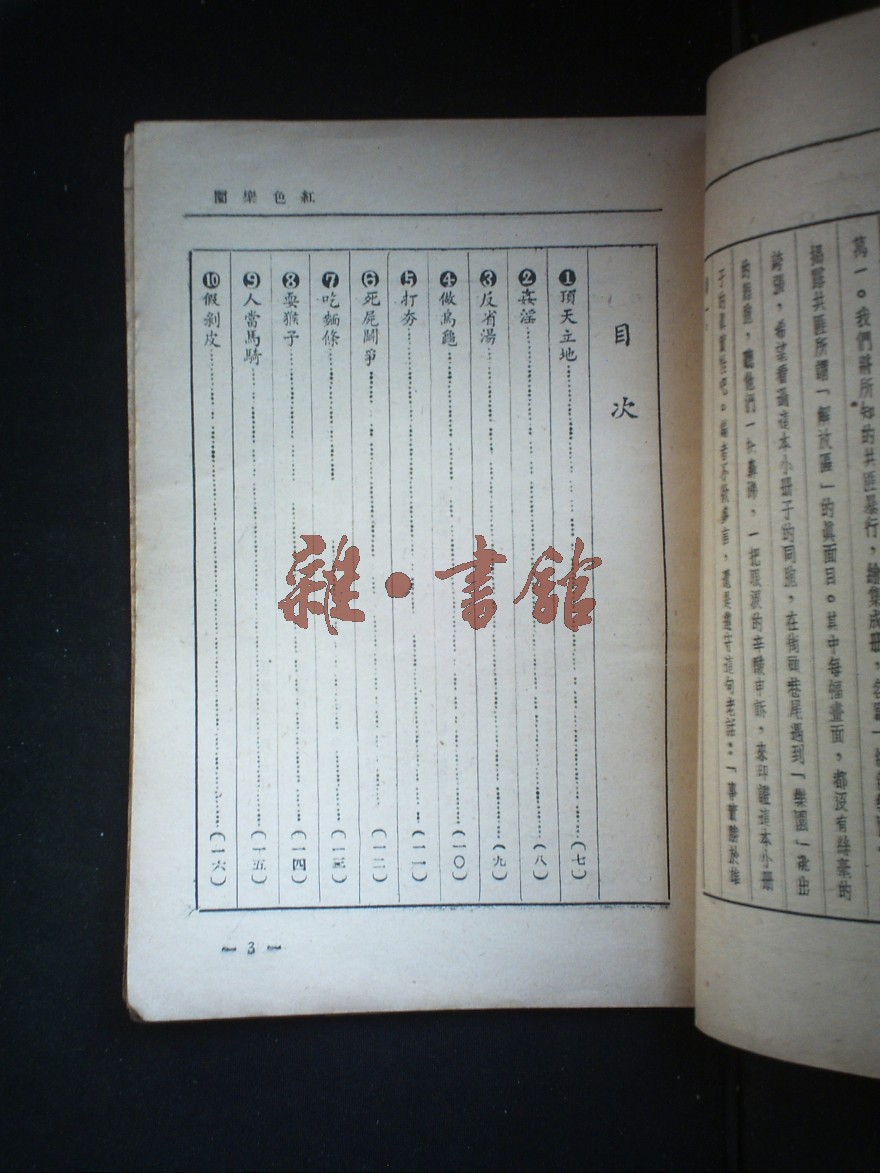 萬一。我們將所知的共匪暴行，繪集成冊，
揭露共匪所謂「解放區」的眞面目。其中每幅畫面，都沒有絲毫的
誇張，希望看過這本小册子的同胞，在街頭巷尾遇到「集團」逃出
的難胞，聽他們一次哀訴，一把眼淚的辛酸申訴，來印證這本小册
子的眞實性吧。
紅色樂園
目次
❶頂天立地(七)
❷姦淫(八)
❸反省湯(九)
❹做烏龜(一〇)
❺打夯(一一)
❻死屍鬪爭(一二)
❼吃麵條(一三)
❽耍猴子(一四)
❾人當馬騎(十五)
❿假剝皮(一六)
雜·書館
— 3 —